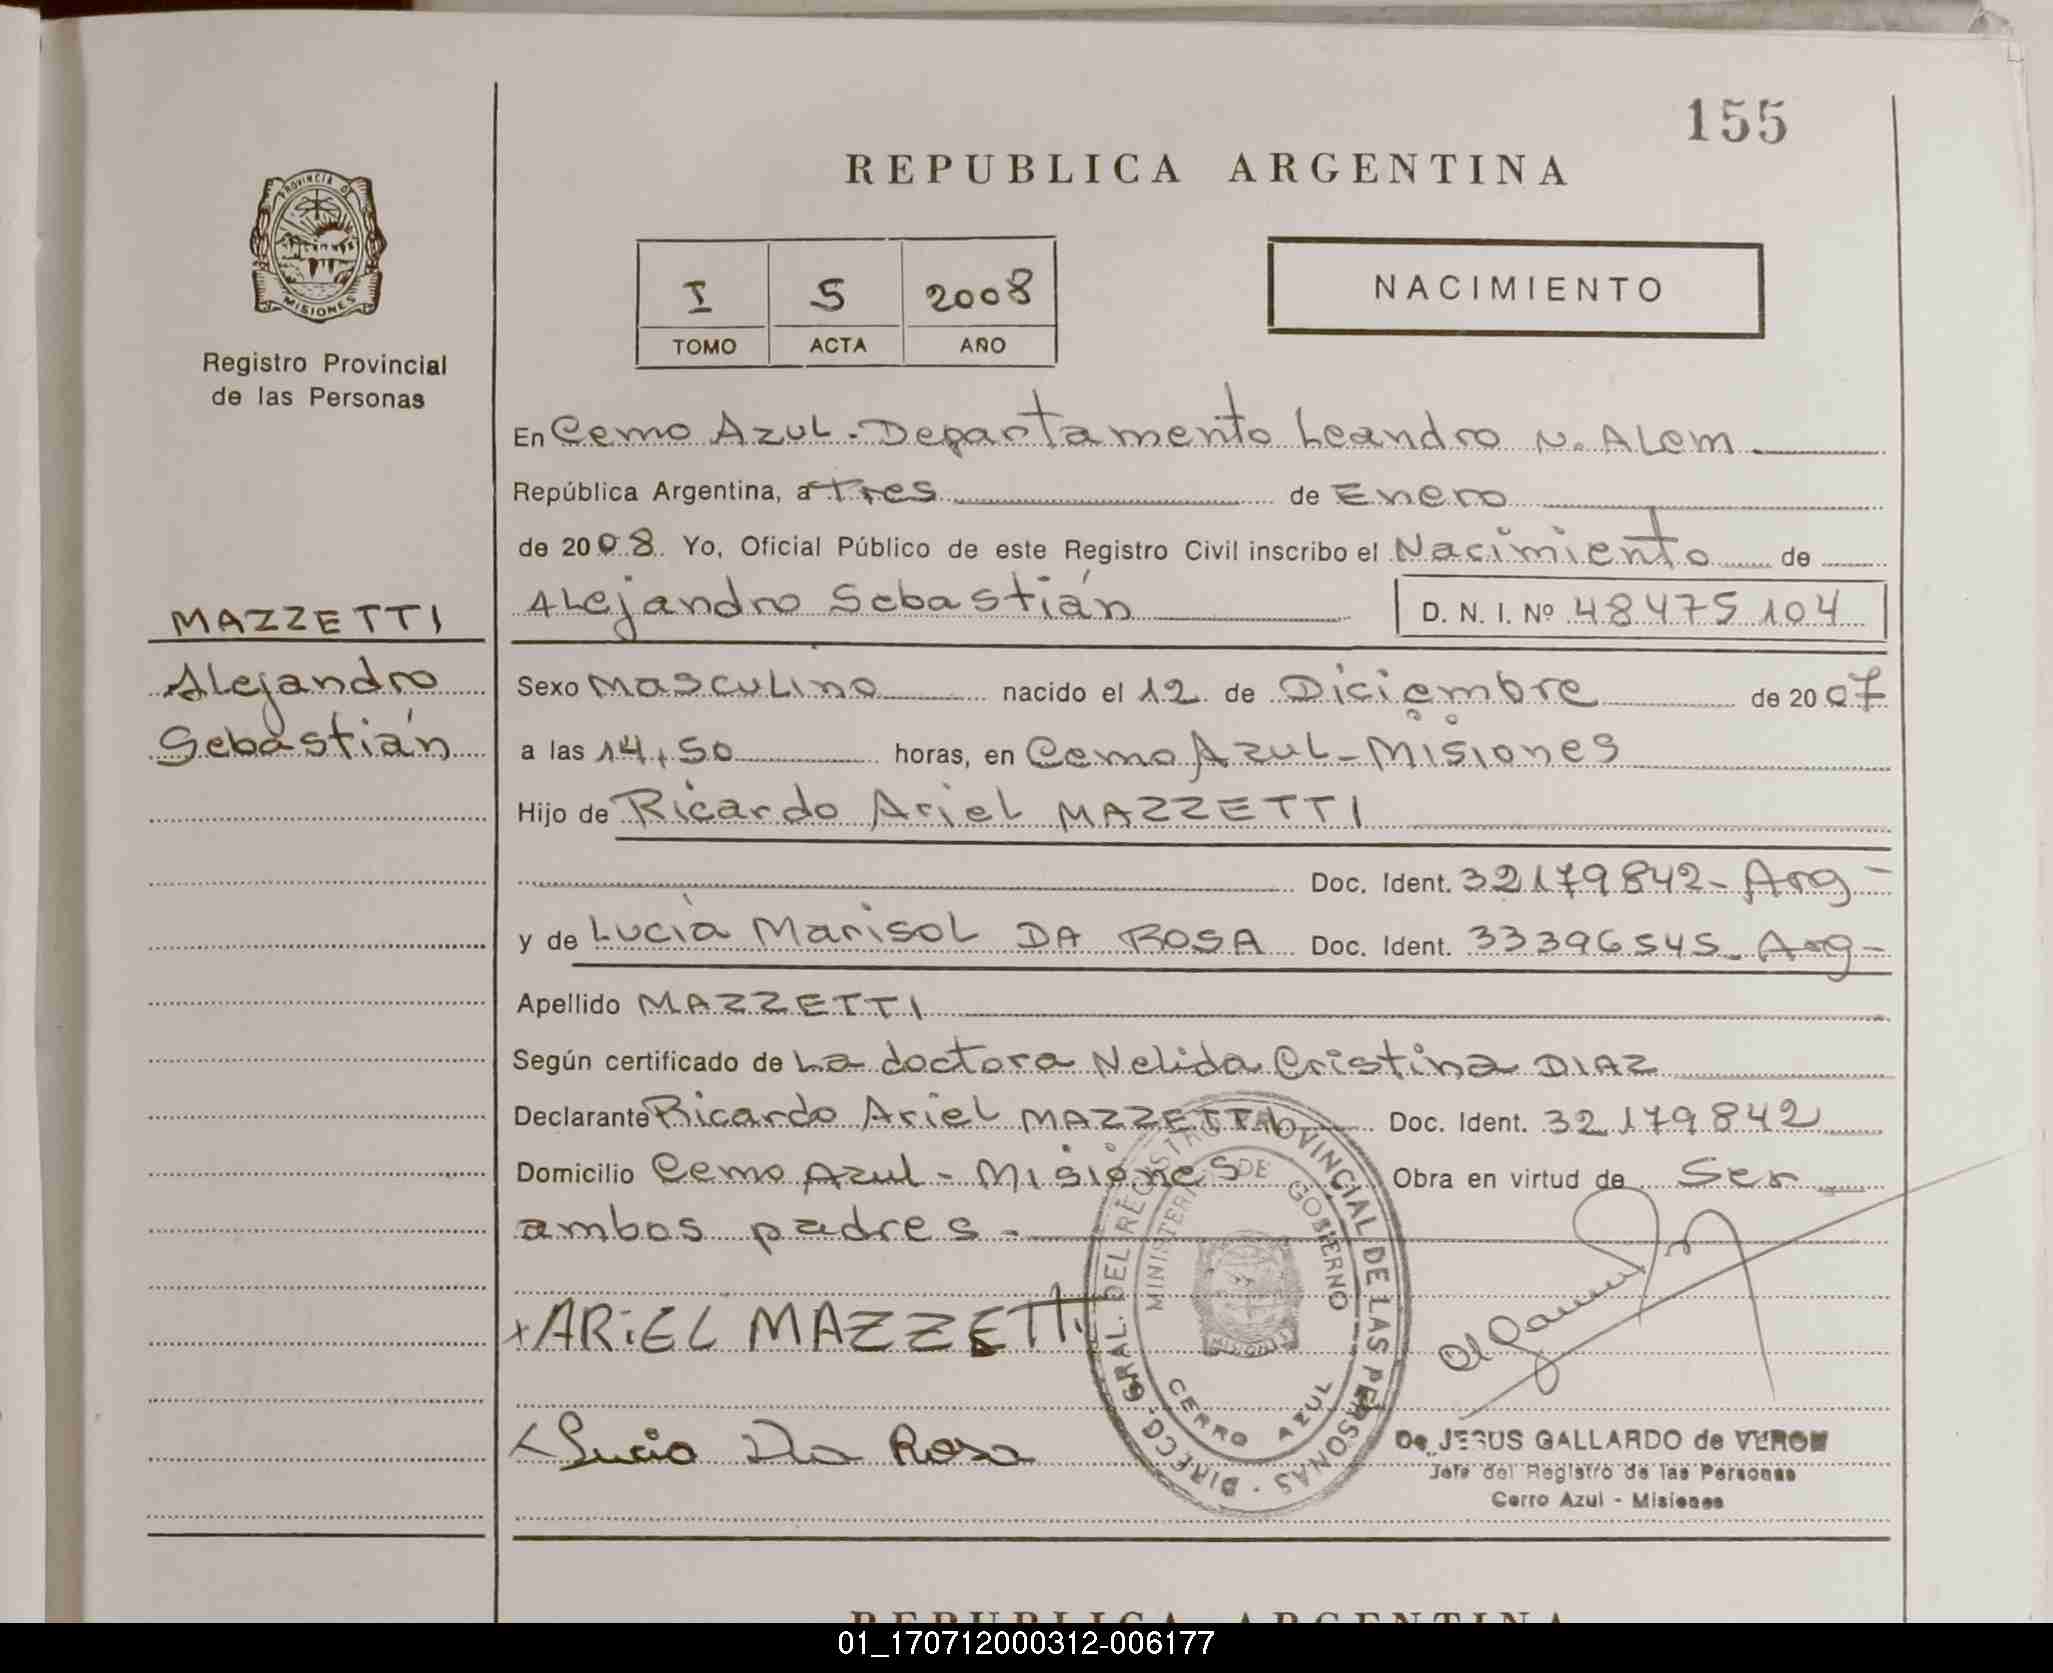 155
REPUBLICA ARGENTINA
PROVINCIA D
MISIONES
Registro Provincial
de las Personas
I 5 2008
TOMO ACTA AÑO
NACIMIENTO
En Cerro Azul - Departamento Leandro N. Alem
República Argentina, a Tres de Enero
de 2008 Yo, Oficial Público de este Registro Civil inscribo el Nacimiento de
Alejandro Sebastián D. N. I. Nº 48475104
MAZZETTI
Alejandro
Sebastián
Sexo Masculino nacido el 12 de Diciembre de 2007
a las 14,50 horas, en Cerro Azul - Misiones
Hijo de Ricardo Ariel MAZZETTI
Doc. Ident. 32179842 - Arg -
y de Lucia Marisol DA ROSA Doc. Ident. 33396545 - Arg -
Apellido MAZZETTI
Según certificado de La doctora Nelida Cristina DIAZ
Declarante Ricardo Ariel MAZZETTI Doc. Ident. 32179842
Domicilio Cerro Azul - Misiones Obra en virtud de Ser
ambos padres.
x ARiEL MAZZETTi
x Lucia Da Rosa
DIRECC. GRAL. DEL REGISTRO PROVINCIAL DE LAS PERSONAS
MINISTERIO DE GOBIERNO
CERRO AZUL
JESUS GALLARDO de VERON
Jefe del Registro de las Personas
Cerro Azul - Misiones
REPUBLICA ARGENTINA
01_170712000312-006177